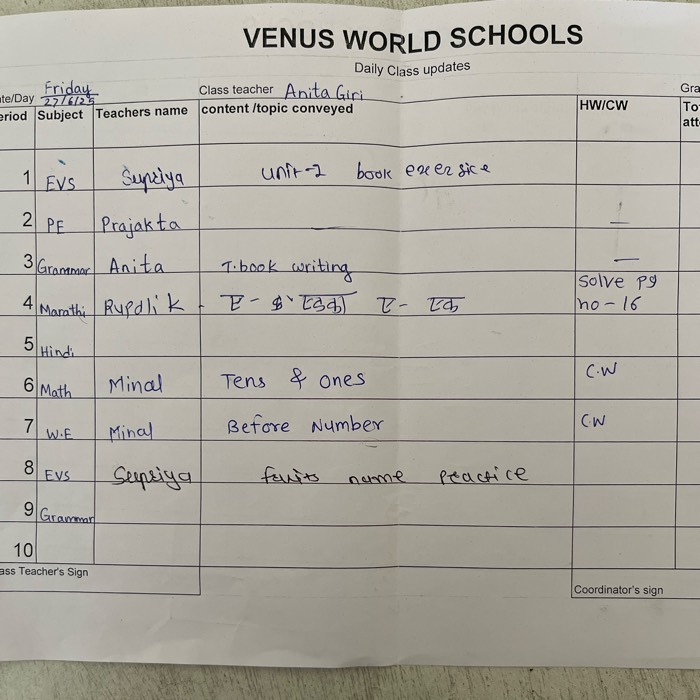 VENUS WORLD SCHOOLS
Daily Class updates
te/Day Friday 27/6/25 Class teacher Anita Giri Gra
eriod Subject Teachers name content /topic conveyed HW/CW To
att
1 EVS Supriya unit-2 book exersice
2 PE Prajakta —
3 Grammar Anita T.book writing —
4 Marathi ए - ए - एक Solve pg no - 16
5 Hindi
6 Math Minal Tens & ones C.W
7 W.E Minal Before Number CW
8 EVS Supriya fruits name practice
9 Grammar
10
ass Teacher's Sign
Coordinator's sign